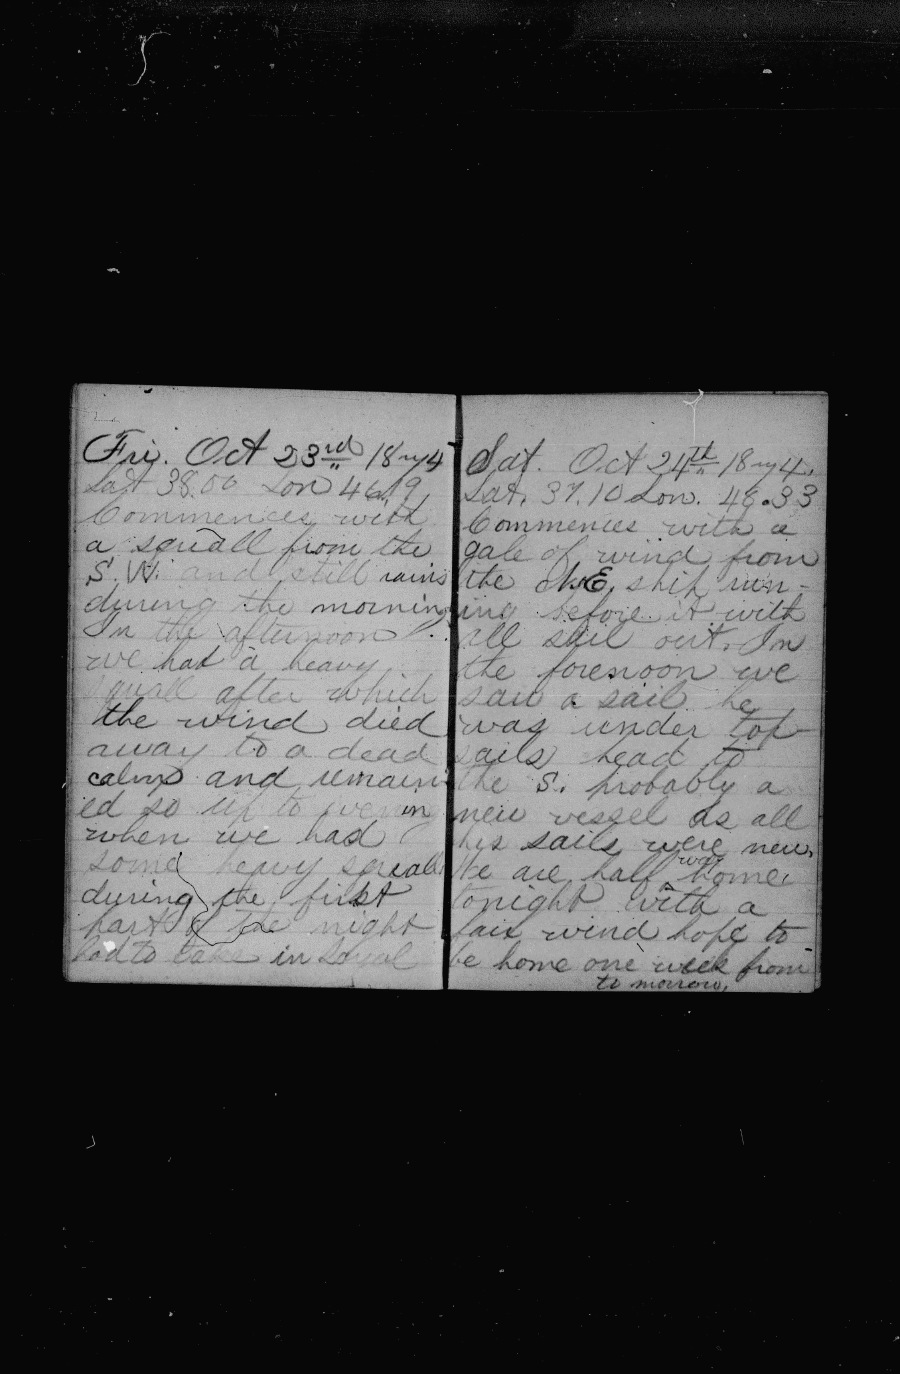 Fri. Oct 23rd 1874
Lat 38.00 Lon 46.19
Commences with
a squall from the
S. W. and still rains
during the morning
In the afternoon
we had a heavy
squall after which
the wind died
away to a dead
calm and remain-
ed so up to evening
when we had
some heavy squalls
during the first
part of the night
had to take in
Sat. Oct 24th 1874.
Lat. 37.10 Lon. 46.33
Commences with a
gale of wind from
the N.E. ship run-
ing before it with
all sail out. In
the forenoon we
saw a sail he
was under top-
sails head to
the S. probably a
new vessel as all
his sails were new,
We are half way home
tonight with a
fair wind hope to
be home one week from
to morrow,